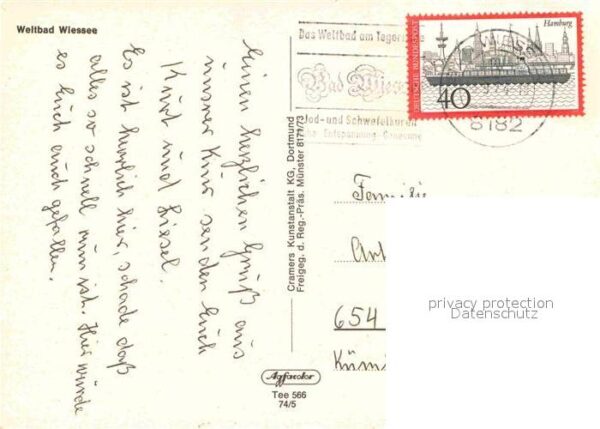 Weltbad Wiessee
Einen herzlichen Gruß aus
unserer Kur senden Euch
Kurt und Liesel.
Es ist herrlich hier, schade daß
alles so schnell rum ist. Hier würde
es Euch auch gefallen.
Cramers Kunstanstalt KG, Dortmund
Freigeg. d. Reg.-Präs. Münster 8171/73
Agfacolor
Tee 566
74/5
Das Weltbad am Tegernsee
Bad Wiessee
Jod- und Schwefelkuren
Entspannung
8182
Hamburg
DEUTSCHE BUNDESPOST
40
Familie
654
privacy protection
Datenschutz